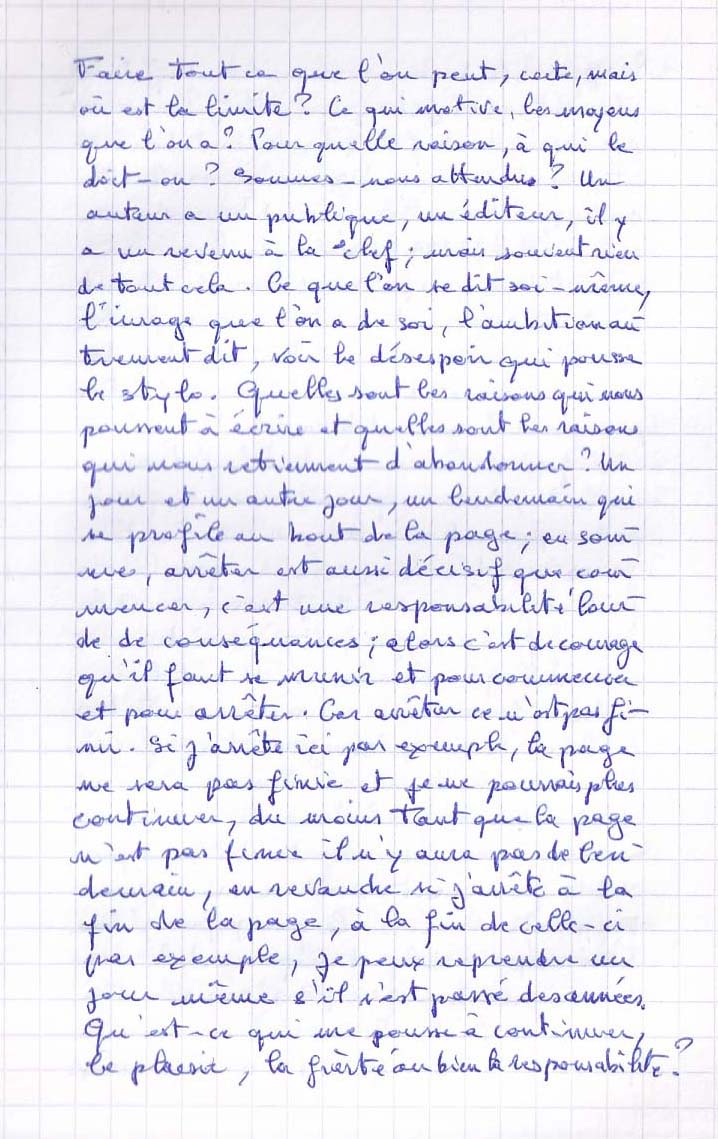 Faire tout ce que l'on peut, certe, mais
où est la limite? Ce qui motive, les moyens
que l'on a? Pour quelle raison, à qui le
doit-on? Sommes-nous attendus? Un
auteur a un publique, un éditeur, il y
a un revenu à la clef; mais souvent rien
de tout cela. Ce que l'on se dit soi-même,
l'image que l'on a de soi, l'ambition au
trement dit, voir le désespoir qui pousse
le stylo. Quelles sont les raisons qui nous
poussent à écrire et quelles sont les raisons
qui nous retiennent d'abandonner? Un
jour et un autre jour, un lendemain qui
se profile au bout de la page; en som
mes, arrêter est aussi décisif que com
mencer, c'est une responsabilité lour
de de conséquances; alors c'est de courage
qu'il faut se munir et pour commencer
et pour arrêter. Car arrêter ce n'est pas fi-
nir. Si j'arrête ici par exemple, la page
ne sera pas finie et je ne pourrais plus
continuer, du moins tant que la page
n'est pas finie il n'y aura pas de len
demain, en revanche si j'arrête à la
fin de la page, à la fin de celle-ci
par exemple, je peux reprendre un
jour même s'il s'est passé des années.
Qu'est-ce qui me pousse à continuer,
le plaisir, la fièrté ou bien la responsabilité?